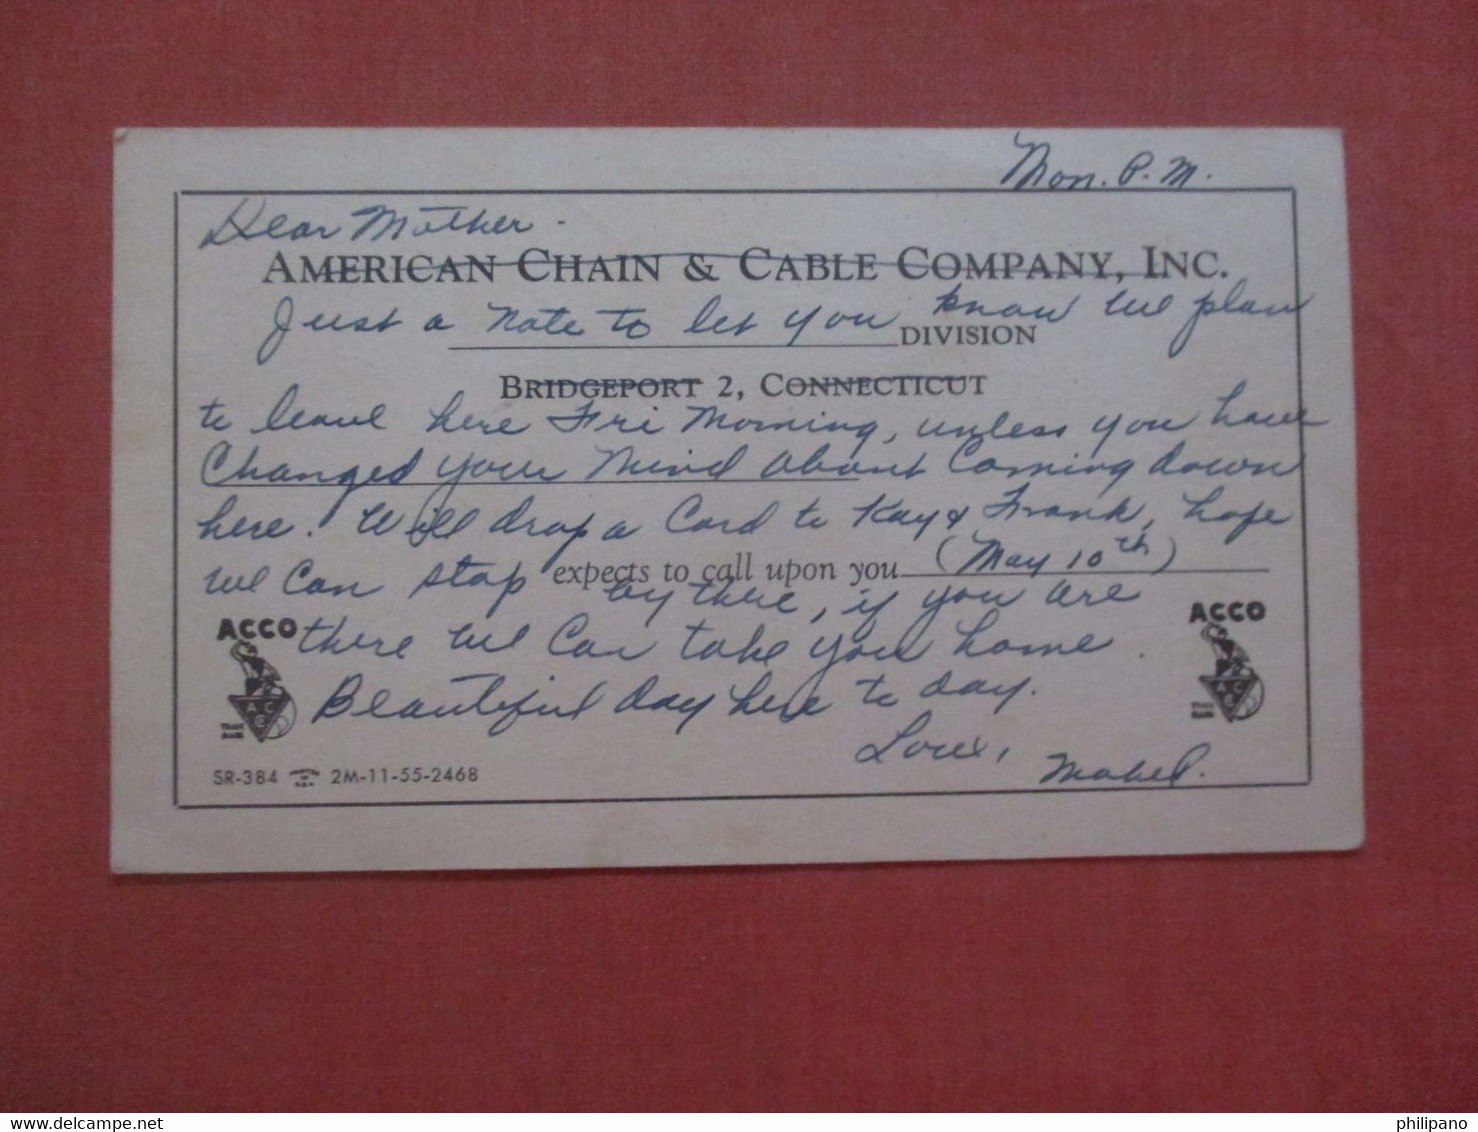 Mon. P.M.
Dear Mother -
AMERICAN CHAIN & CABLE COMPANY, INC.
Just a note to let you know we plan
DIVISION
BRIDGEPORT 2, CONNECTICUT
to leave here Fri Morning, unless you have
Changed your Mind about Coming down
here. Will drop a Card to Kay & Frank, hope
we Can stop by there, if you are
expects to call upon you (May 10th)
there we Can take you home.
Beautiful day here to day.
Love,
Mabel.
ACCO
ACCO
SR-384 2M-11-55-2468
philipano